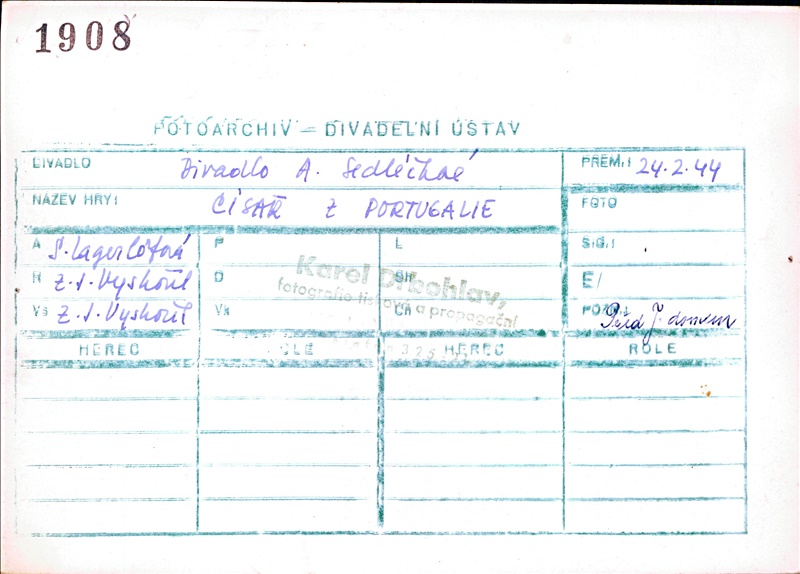 1908
FOTOARCHIV – DIVADELNÍ ÚSTAV
DIVADLO Divadlo A. Sedláčkové PREM.: 24.2.44
NÁZEV HRY: CÍSAŘ Z PORTUGALIE FOTO
A S. Lagerlöfová P L SIG.:
R Z. J. Vyskočil D Sh E/
Vs Z. J. Vyskočil Vk Ch POZN.: Před J. domem
Karel Drbohlav,
fotografie listková a propagační
HEREC ROLE HEREC ROLE